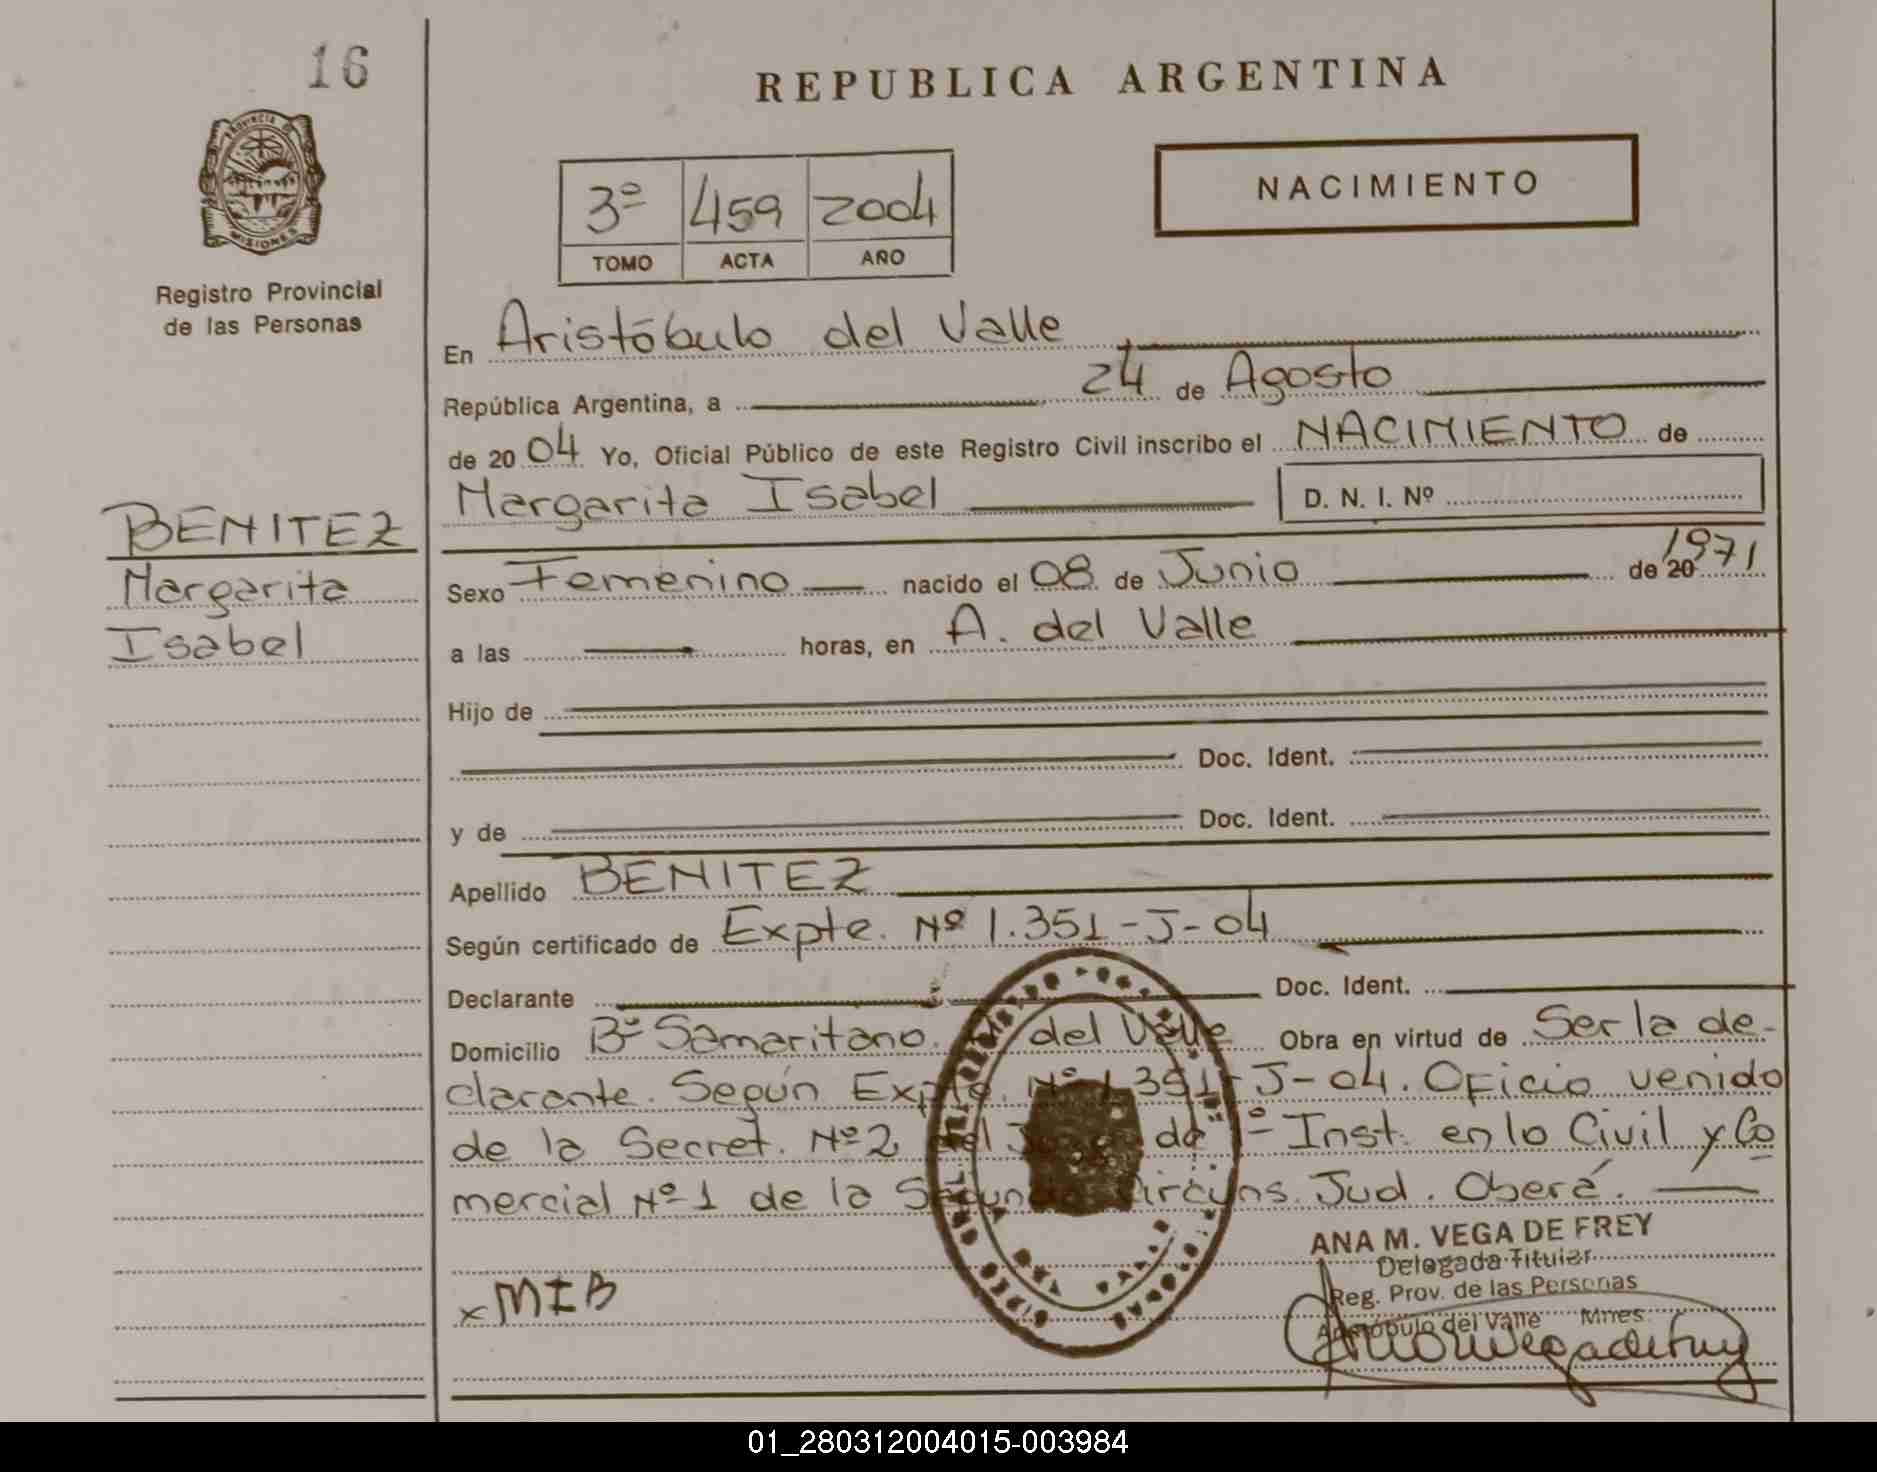 16
REPUBLICA ARGENTINA
PROVINCIA DE
MISIONES
Registro Provincial
de las Personas
3º 459 2004
TOMO ACTA AÑO
NACIMIENTO
En Aristóbulo del Valle
República Argentina, a 24 de Agosto
de 20 04 Yo, Oficial Público de este Registro Civil inscribo el NACIMIENTO de
Margarita Isabel D. N. I. Nº
BENITEZ
Margarita
Isabel
Sexo Femenino nacido el 08 de Junio de 20 1971
a las horas, en A. del Valle
Hijo de
Doc. Ident.
y de Doc. Ident.
Apellido BENITEZ
Según certificado de Expte. Nº 1.351-J-04
Declarante Doc. Ident.
Domicilio Bº Samaritano. del Valle Obra en virtud de Ser la de-
clarante. Según Expte. Nº 1.351-J-04. Oficio venido
de la Secret. Nº 2 del de 1º Inst. en lo Civil y Co
mercial Nº 1 de la Segunda Circuns. Jud. Oberá.
ANA M. VEGA DE FREY
Delegada Titular
Reg. Prov. de las Personas
Aristóbulo del Valle Mnes.
x MIB
01_280312004015-003984